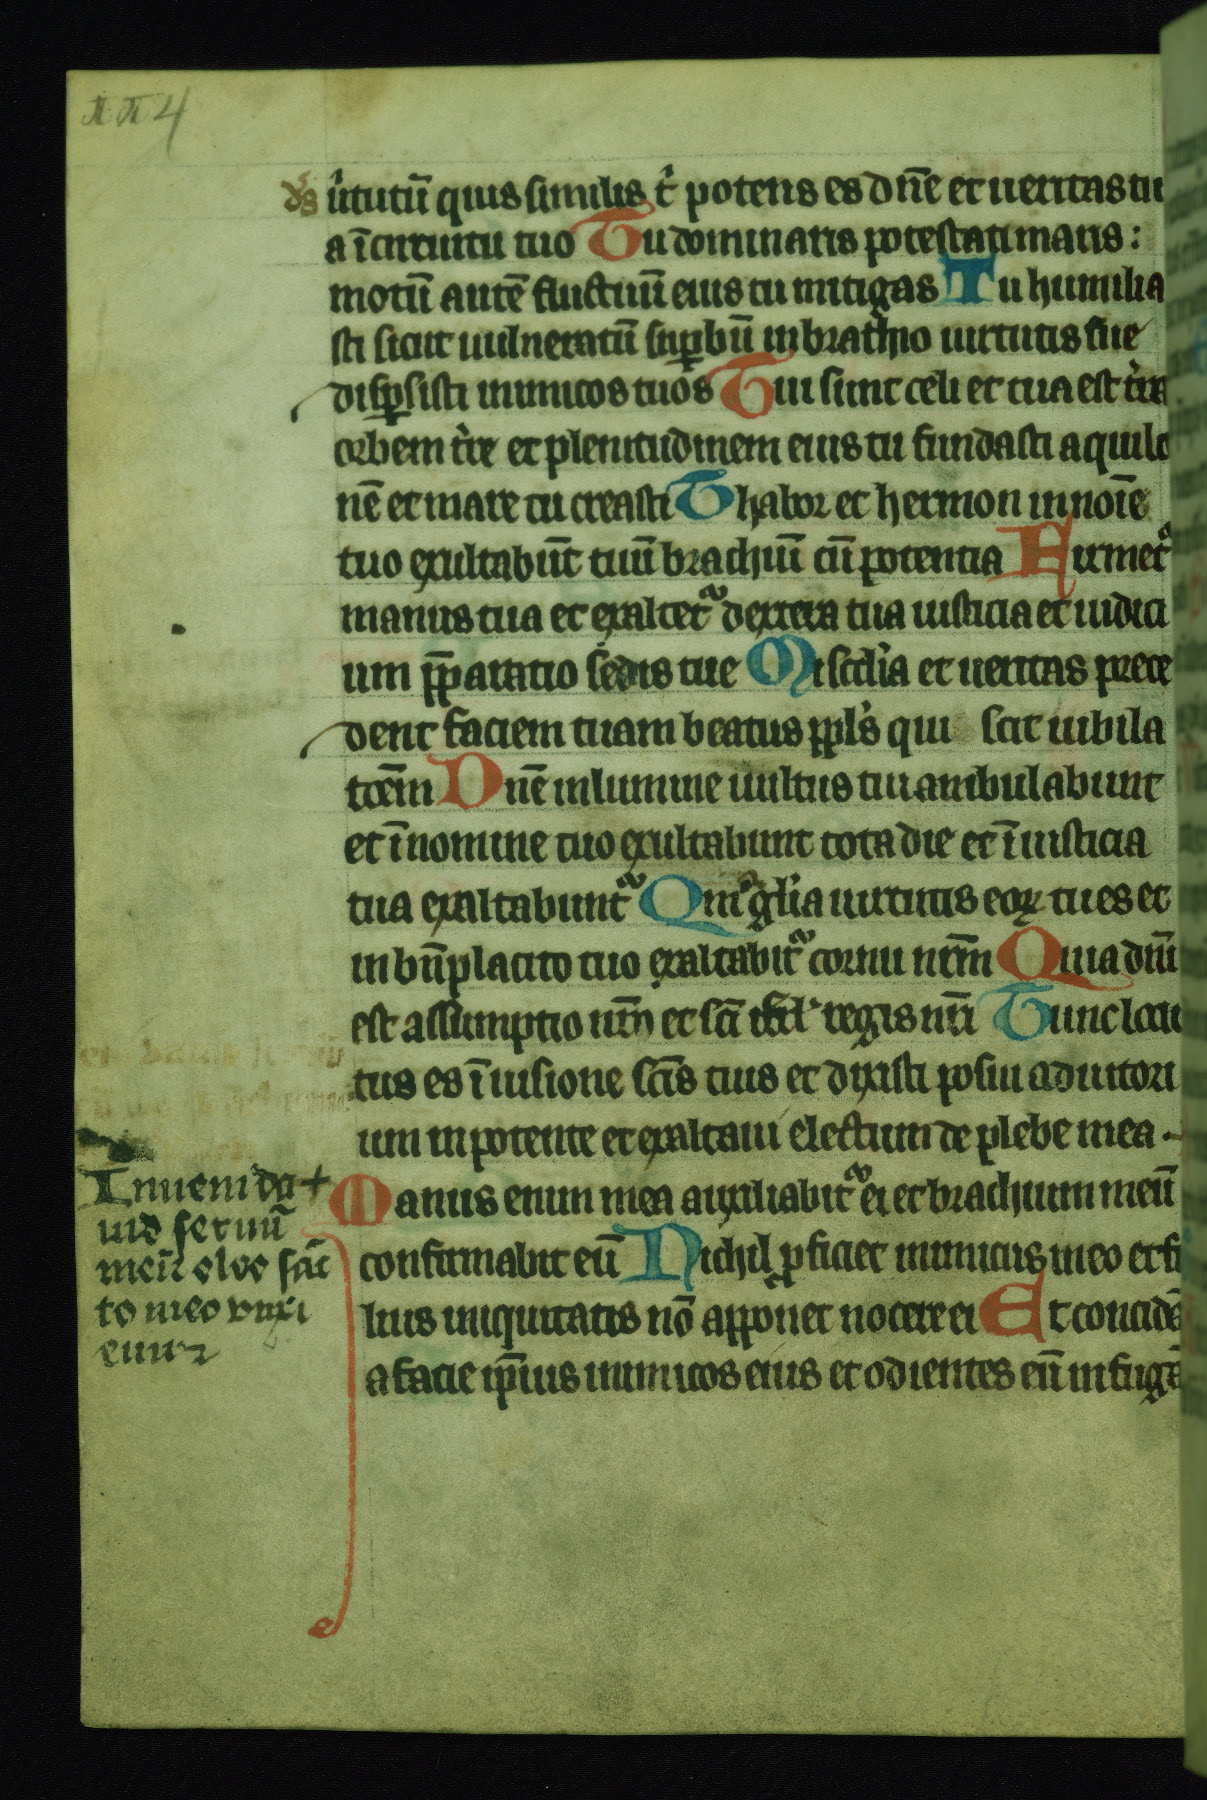 ds ũtutũ quis similis t̃ potens es dñe et ueritas tu
a ĩ circuitu tuo Tu dominaris potestati maris :
motũ autẽ fluctuũ eius tu mitigas Tu humilia
sti sicut uulneratũ suꝑbũ in brachio uirtutis tue
disꝑsisti inimicos tuos Tui sunt celi et tua est t̃ra
orbem t̃re et plenitudinem eius tu fundasti aquilo
nẽ et mare tu creasti Thabor et hermon in noĩe
tuo exultabũt tuũ brachiũ cũ potentia Firmet᷑
manus tua et exaltet᷑ dextera tua iusticia et iudici
um p̄paratio sedis tue Misc̃dia et ueritas prece
dent faciem tuam beatus ppls̃ qui scit iubila
tõem Dñe in lumine uultus tui ambulabunt
et ĩ nomine tuo exultabunt tota die et ĩ iusticia
tua exaltabunt᷑ Qm̃ gl̃ia uirtutis eoꝝ tu es et
in bñplacito tuo exaltabit᷑ cornu nr̃m Quia dñi
est assumptio nr̃m et sc̃i isrl̃ regis nr̃i Tunc locu
tus es ĩ uisione sc̃is tuis et dixisti posui adiutori
um in potente et exaltaui electum de plebe mea
Manus enim mea auxiliabit᷑ ei et brachium meũ
confirmabit eũ Nichil ꝓficiet inimicus meo et fi
lius iniquitatis nõ apponet nocere ei Et concidã
a facie ip̃ius inimicos eius et odientes eũ in fugã
Inueni da +
uid seruũ
meũ oleo sãc
to meo vnxi
eum